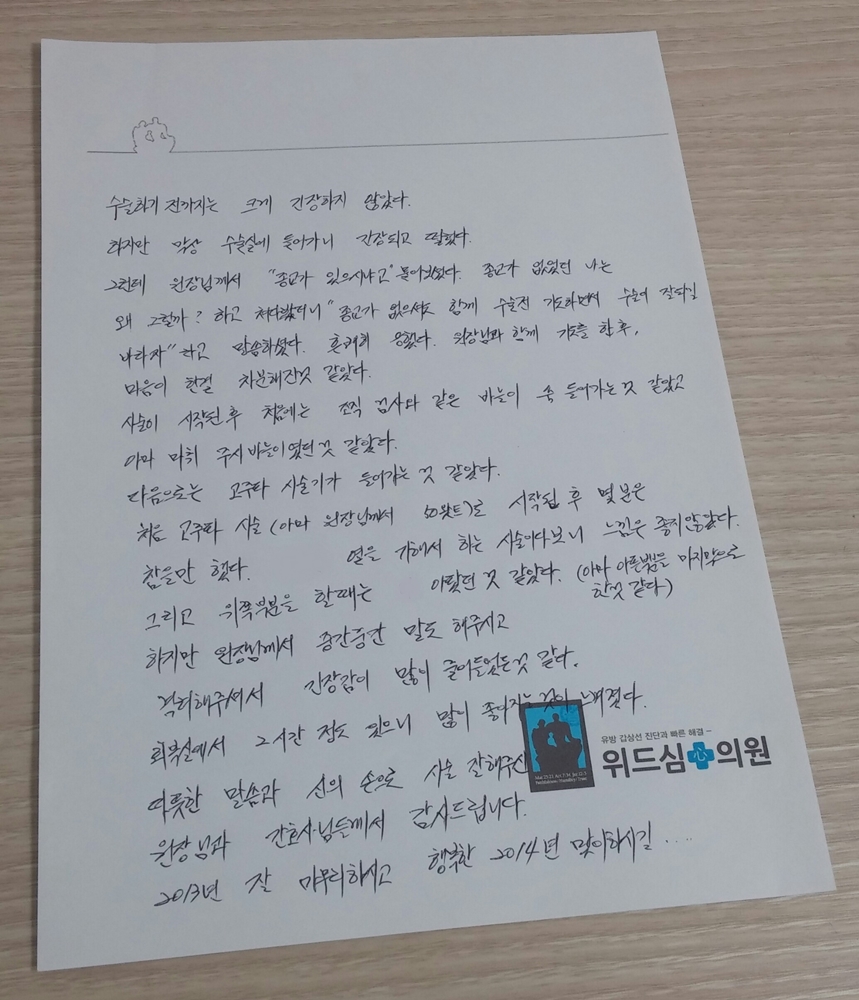 수술하기 전까지는 크게 긴장하지 않았다.
하지만 막상 수술실에 들어가니 긴장되고 떨렸다.
그런데 원장님께서 "종교가 있으시냐고" 물어보셨다. 종교가 없었던 나는
왜 그럴까? 하고 쳐다봤더니 "종교가 없으셔도 함께 수술전 기도하면서 수술이 잘되길
바라자"라고 말씀하셨다. 흔쾌히 응했다. 원장님과 함께 기도를 한 후,
마음이 한결 차분해진것 같았다.
시술이 시작된 후 처음에는 조직 검사와 같은 바늘이 쑥 들어가는 것 같았고
아마 마취 주사바늘이였던 것 같았다.
다음으로는 고주파 시술기가 들어가는 것 같았다.
처음 고주파 시술 (아마 원장님께서 50왓트)로 시작된 후 몇분은
참을만 했다. 열을 가해서 하는 시술이다보니 느낌은 좋지않았다.
그리고 위쪽부분을 할때는 아팠던 것 같았다. (아마 아픈쪽을 마지막으로
한것 같다)
하지만 원장님께서 중간중간 말도 해주시고
격려해주셔서 긴장감이 많이 줄어들었던것 같다.
회복실에서 2시간 정도 있으니 많이 좋아지는 것이 느껴졌다.
따뜻한 말씀과 신의 손으로 시술 잘해주신
원장님과 간호사님들께서 감사드립니다.
2013년 잘 마무리하시고 행복한 2014년 맞이하시길....
유방 갑상선 진단과 빠른 해결 –
위드심의원